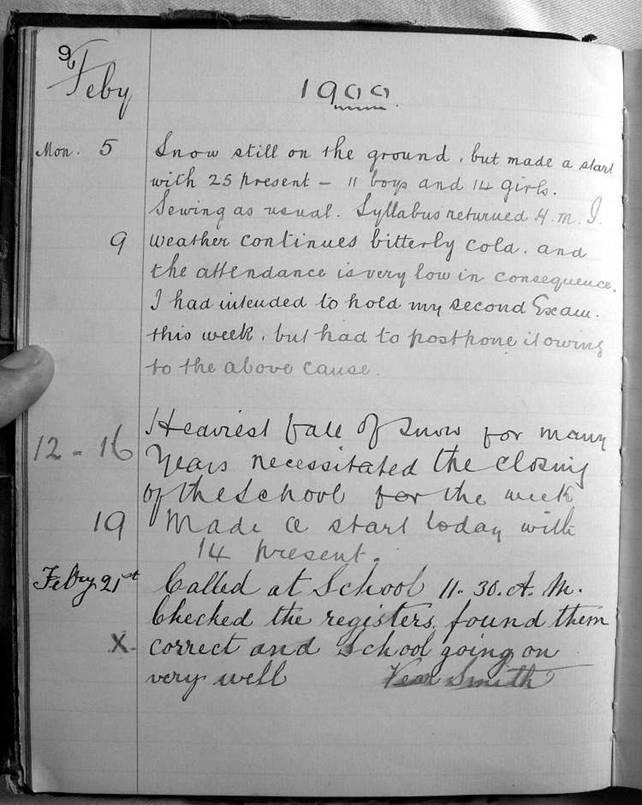 96
Feby 1900
Mon. 5 Snow still on the ground, but made a start
with 25 present – 11 boys and 14 girls.
Sewing as usual. Syllabus returned H. m. I.
9 Weather continues bitterly cold, and
the attendance is very low in consequence.
I had intended to hold my second Exam.
this week, but had to postpone it owing
to the above cause.
12 - 16 Heaviest fall of snow for many
Years necessitated the closing
of the School for the week
19 Made a start today with
14 present.
Feby 21st Called at School 11. 30. A. M.
Checked the registers, found them
X. correct and School going on
very well Smith